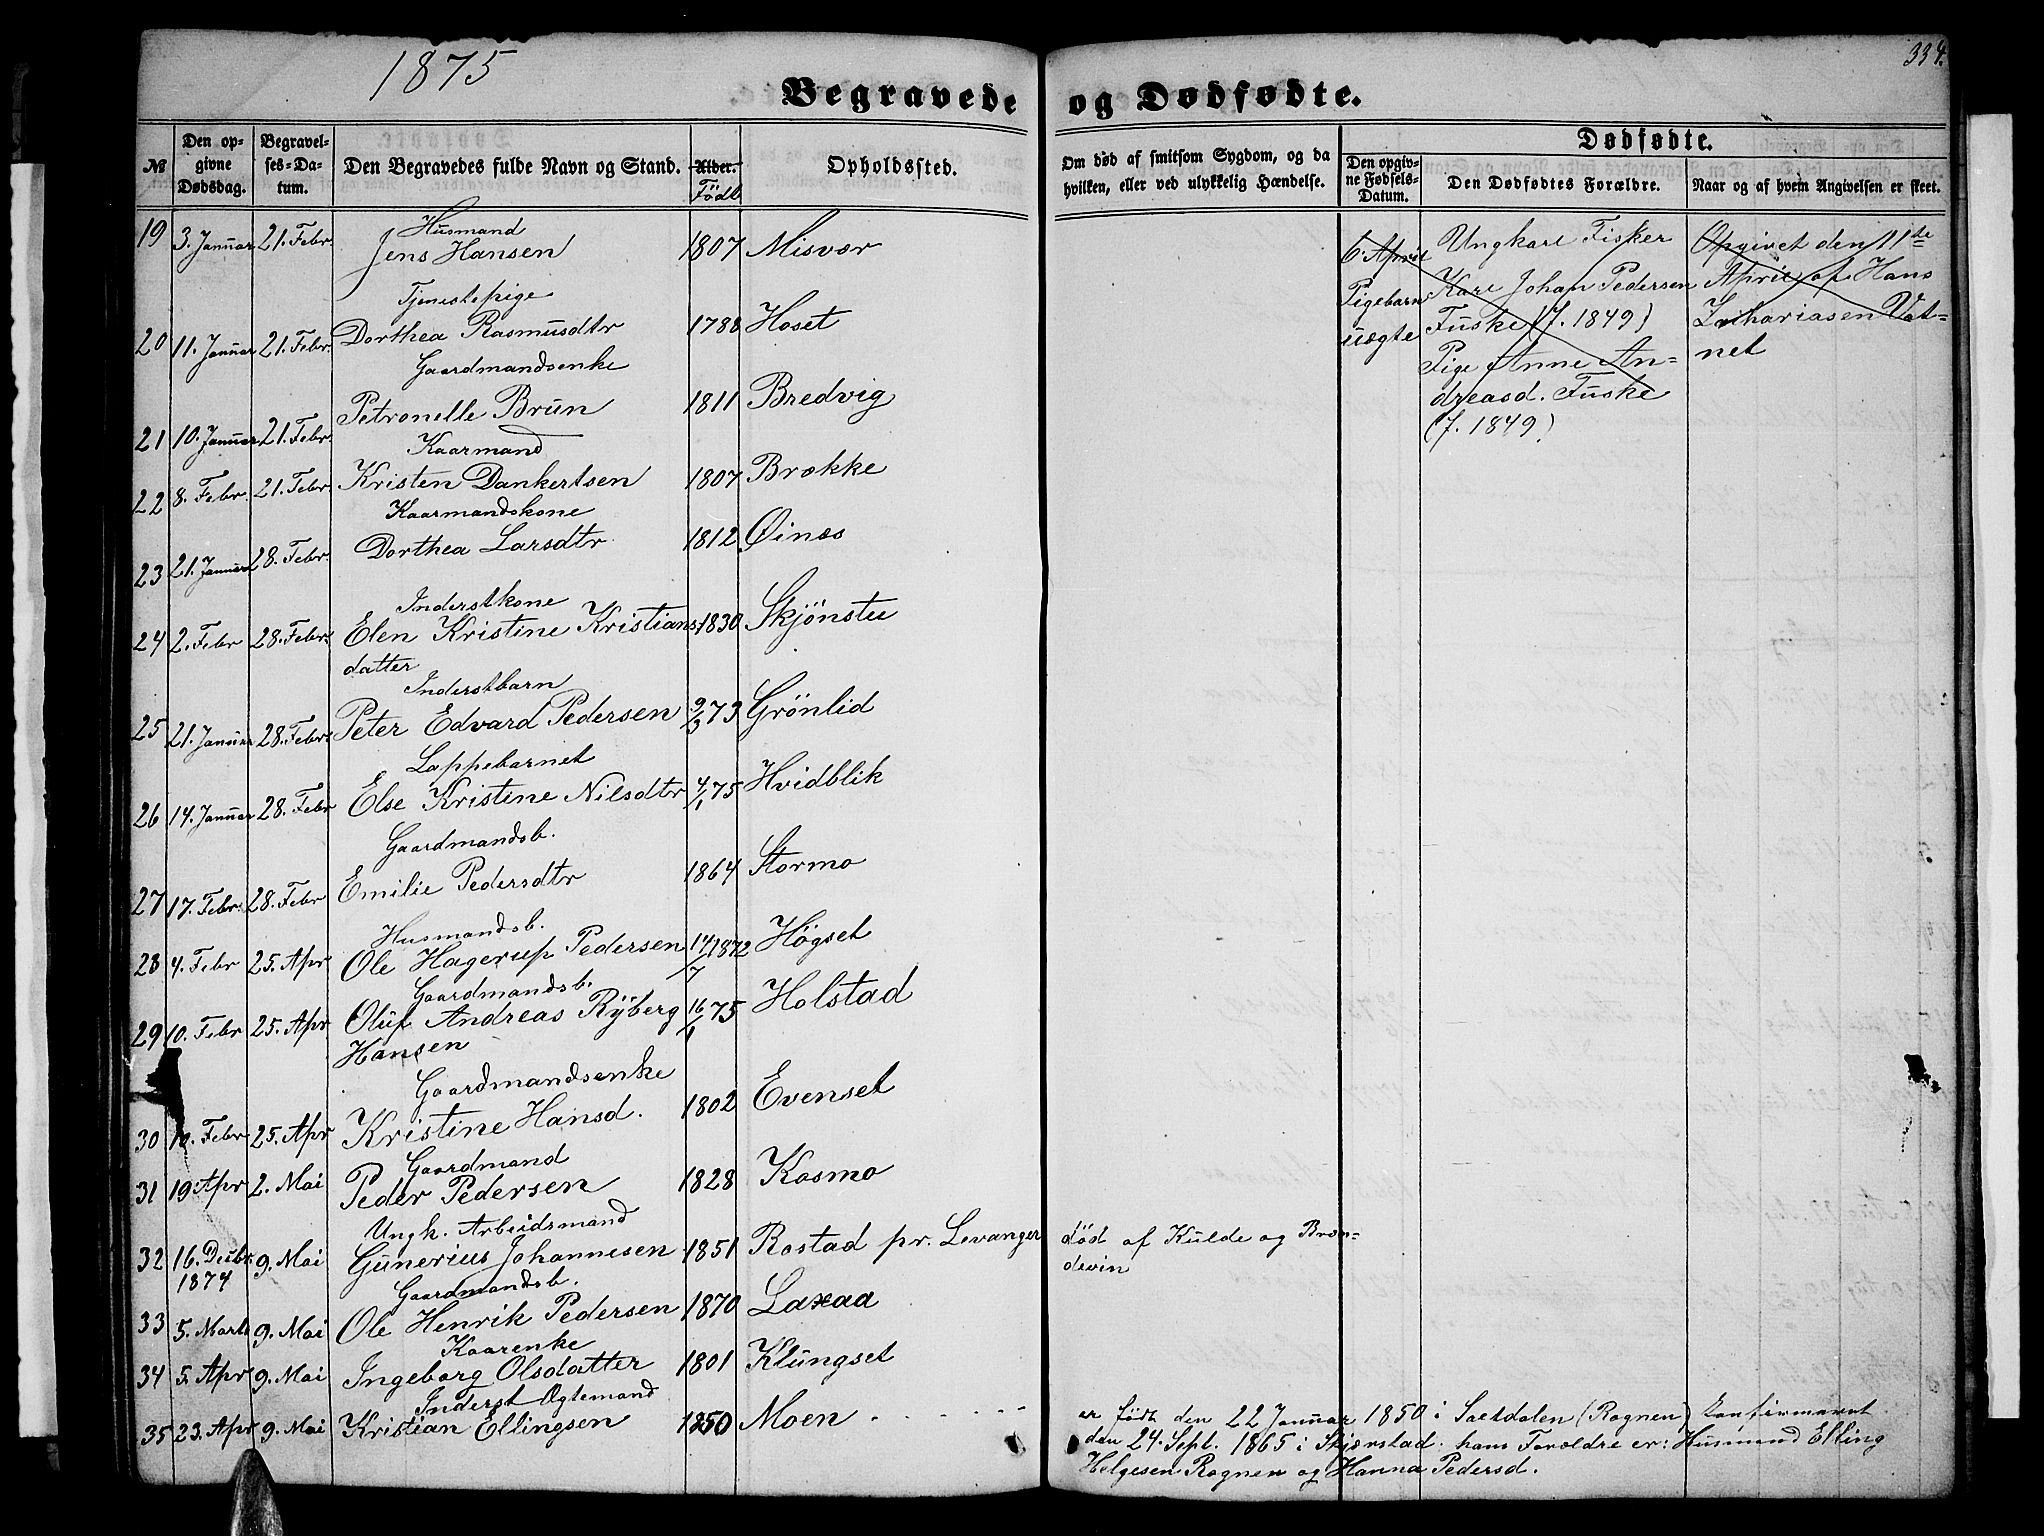 1875
334.
Begravede og Dødfødte.
№
Den opgivne Dødsdag.
Begravelses-Datum.
Den Begravedes fulde Navn og Stand.
Alder.
Född
Opholdssted.
Om død af smitsom Sygdom, og da hvilken, eller ved ulykkelig Hændelse.
Dødfødte.
Den opgivne Fødsels-Datum.
Den Dødfødtes Forældre.
Naar og af hvem Angivelsen er skeet.
Husmand
19 3. Januar 21. Febr. Jens Hansen 1807 Misvær
Tjenestepige
20 11. Januar 21. Febr. Dorthea Rasmusdtr 1788 Hoset
Gaardmandsenke
21 10. Januar 21. Febr. Petronelle Brun 1811 Bredvig
Kaarmand
22 8. Febr. 21. Febr. Kristen Dankertsen 1807 Brække
Kaarmandskone
23 21. Januar 28. Febr. Dorthea Larsdtr 1812 Øinæs
Inderstkone
24 2. Febr 28. Febr. Elen Kristine Kristians 1830 Skjönstu
datter
Inderstbarn
25 21. Januar 28. Febr. Peter Edvard Pedersen 9/3 73 Grönlid
Lappebarnet
26 14. Januar 28. Febr Else Kristine Nilsdtr 4/1 75 Hvidblik
Gaardmandsb.
27 17. Febr. 28. Febr Emilie Pedersdtr 1864 Stormo
Husmandsb.
28 4. Febr 25. Apr Ole Hagerup Pedersen 14/7 1872 Högset
Gaardmandsb.
29 10. Febr 25. Apr Oluf Andreas Ryberg 16/1 75 Holstad
Hansen
Gaardmandsenke
30 10. Febr 25. Apr Kristine Hansd. 1802 Evenset
Gaardmand
31 19. Apr 2. Mai Peder Pedersen 1828 Kosmo
Ungk. Arbeidsmand
32 16. Decbr. 9. Mai Gunerius Johannesen 1851 Rostad pr. Levanger død af Kulde og Bræn-
1874
devin
Gaardmandsb.
33 5. Marts 9. Mai Ole Henrik Pedersen 1870 Laxaa
Kaarenke
34 5. Apr 9. Mai Ingeborg Olsdatter 1801 Klungset
Inderst Ægtemand
35 23. Apr 9. Mai Kristian Ellingsen 1850 Moen
er født den 22 Januar 1850 i Saltdalen (Rognen) konfirmeret
den 24. Sept. 1865 i Skjærstad. hans Forældre er: Husmand Elling
Helgesen Rognen og Hanna Pedersd.
6. April
Pigebarn
uægte
Ungkarl Fisker
Karl Johan Pedersen
Fuske (f. 1849)
Pige Anne An-
dreasd. Fuske
(f. 1849)
Opgivet den 11te
April af Hans
Zachariasen Vat-
net